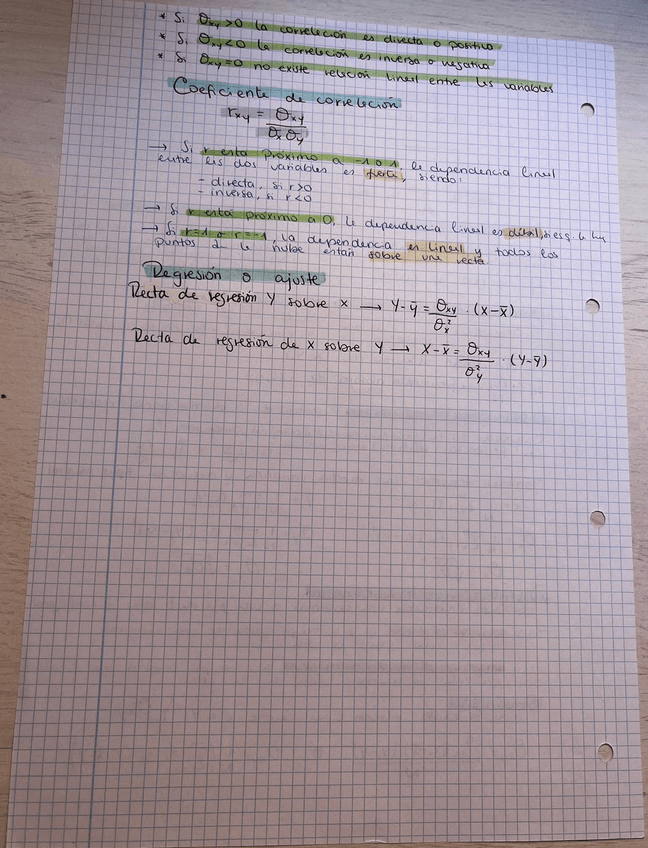 * Si θxy>0 la correlación es directa o positiva
* Si θxy<0 la correlación es inversa o negativa
* Si θxy=0 no existe relación lineal entre las variables
Coeficiente de correlación
rxy = θxy / θx θy
→ Si r está próximo a -1 o 1, la dependencia lineal
entre las dos variables es fuerte, siendo:
- directa, si r>0
- inversa, si r<0
→ Si r está próximo a 0, la dependencia lineal es débil, si es q la hay
→ Si r=1 o r=-1, la dependencia es lineal y todos los
puntos de la nube están sobre una recta.
Regresión o ajuste
Recta de regresión Y sobre x → Y-ȳ = θxy / θ²x · (x-x̄)
Recta de regresión de x sobre Y → X-x̄ = θxy / θ²y · (Y-ȳ)